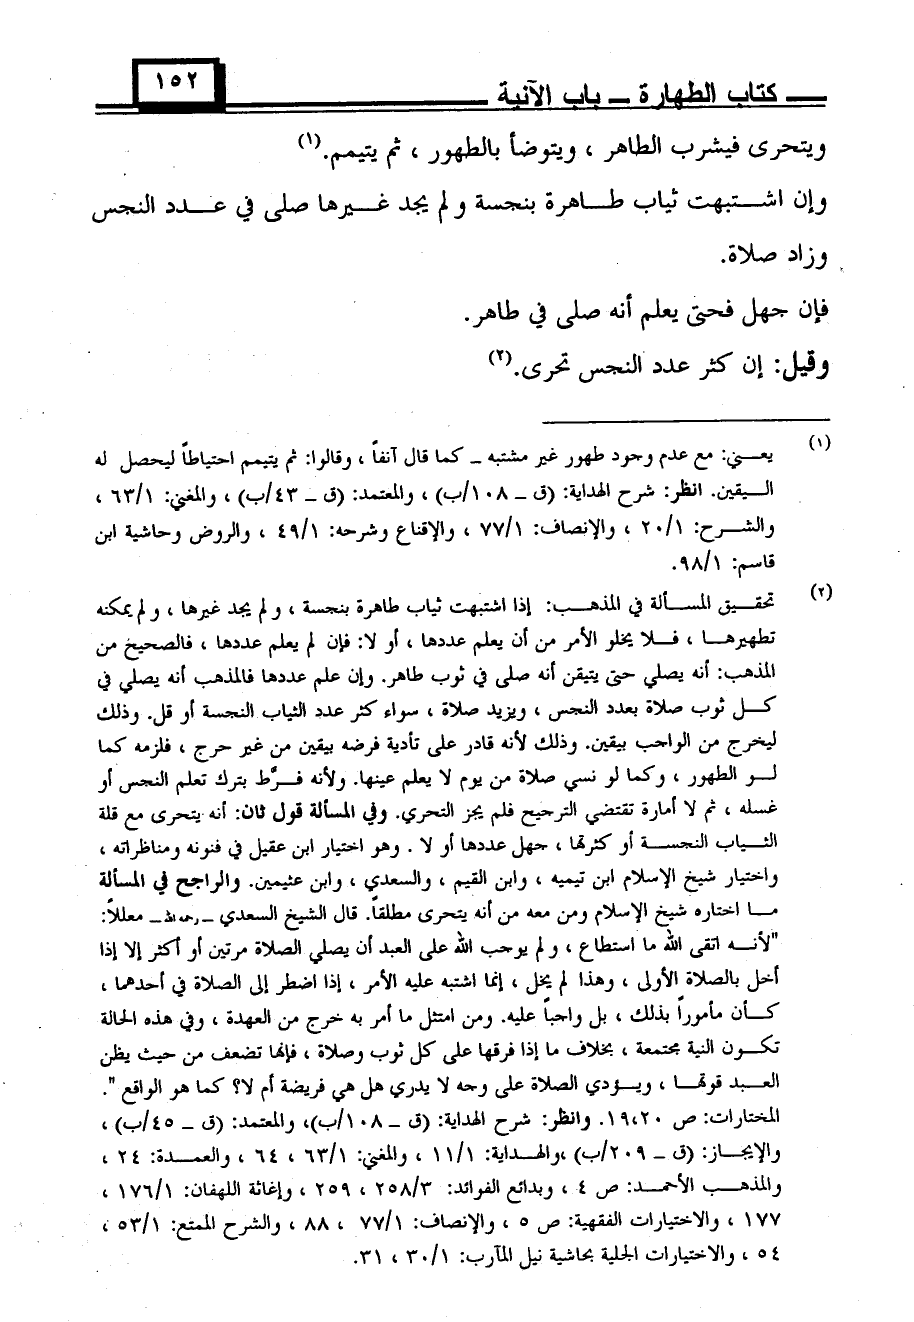 كتاب الطهارة ــ باب الآنية
١٥٢
ويتحرى فيشرب الطاهر ، ويتوضأ بالطهور ، ثم يتيمم.(١)
وإن اشتبهت ثياب طاهرة بنجسة ولم يجد غيرها صلى في عدد النجس
وزاد صلاة.
فإن جهل فحتى يعلم أنه صلى في طاهر.
وقيل: إن كثر عدد النجس تحرى.(٢)
(١) يعني: مع عدم وجود طهور غير مشتبه ــ كما قال آنفاً ، وقالوا: ثم يتيمم احتياطاً ليحصل له
اليقين. انظر: شرح الهداية: (ق ــ ١٠٨/ب) ، والمعتمد: (ق ــ ٤٣/ب) ، والمغني: ٦٣/١ ،
والشرح: ٢٠/١ ، والإنصاف: ٧٧/١ ، والإقناع وشرحه: ٤٩/١ ، والروض وحاشية ابن
قاسم: ٩٨/١.
(٢) تحقيق المسألة في المذهب: إذا اشتبهت ثياب طاهرة بنجسة ، ولم يجد غيرها ، ولم يمكنه
تطهيرها ، فلا يخلو الأمر من أن يعلم عددها ، أو لا: فإن لم يعلم عددها ، فالصحيح من
المذهب: أنه يصلي حتى يتيقن أنه صلى في ثوب طاهر. وإن علم عددها فالمذهب أنه يصلي في
كل ثوب صلاة بعدد النجس ، ويزيد صلاة ، سواء كثر عدد الثياب النجسة أو قل. وذلك
ليخرج من الواجب بيقين. وذلك لأنه قادر على تأدية فرضه بيقين من غير حرج ، فلزمه كما
لو الطهور ، وكما لو نسي صلاة من يوم لا يعلم عينها. ولأنه فرَّط بترك تعلم النجس أو
غسله ، ثم لا أمارة تقتضي الترجيح فلم يجز التحري. وفي المسألة قول ثان: أنه يتحرى مع قلة
الثياب النجسة أو كثرتها ، جهل عددها أو لا . وهو اختيار ابن عقيل في فنونه ومناظراته ،
واختيار شيخ الإسلام ابن تيميه ، وابن القيم ، والسعدي ، وابن عثيمين. والراجح في المسألة
ما اختاره شيخ الإسلام ومن معه من أنه يتحرى مطلقاً. قال الشيخ السعدي ــ رحمه الله ــ معللاً:
"لأنه اتقى الله ما استطاع ، ولم يوجب الله على العبد أن يصلي الصلاة مرتين أو أكثر إلا إذا
أخل بالصلاة الأولى ، وهذا لم يخل ، إنما اشتبه عليه الأمر ، إذا اضطر إلى الصلاة في أحدهما ،
كأن مأموراً بذلك ، بل واجباً عليه. ومن امتثل ما أمر به خرج من العهدة ، وفي هذه الحالة
تكون النية مجتمعة ، بخلاف ما إذا فرقها على كل ثوب وصلاة ، فإنها تضعف من حيث يظن
العبد قوتها ، ويؤدي الصلاة على وجه لا يدري هل هي فريضة أم لا؟ كما هو الواقع ".
المختارات: ص ١٩،٢٠. وانظر: شرح الهداية: (ق ــ ١٠٨/ب)، والمعتمد: (ق ــ ٤٥/ب) ،
والإيجاز: (ق ــ ٢٠٩/ب) ،والهداية: ١١/١ ، والمغني: ٦٣/١ ، ٦٤ ، والعمدة: ٢٤ ،
والمذهب الأحمد: ص ٤ ، وبدائع الفوائد: ٢٥٨/٣ ، ٢٥٩ ، وإغاثة اللهفان: ١٧٦/١ ،
١٧٧ ، والاختيارات الفقهية: ص ٥ ، والإنصاف: ٧٧/١ ، ٨٨ ، والشرح الممتع: ٥٣/١ ،
٥٤ ، والاختيارات الجلية بحاشية نيل المآرب: ٣٠/١ ، ٣١.